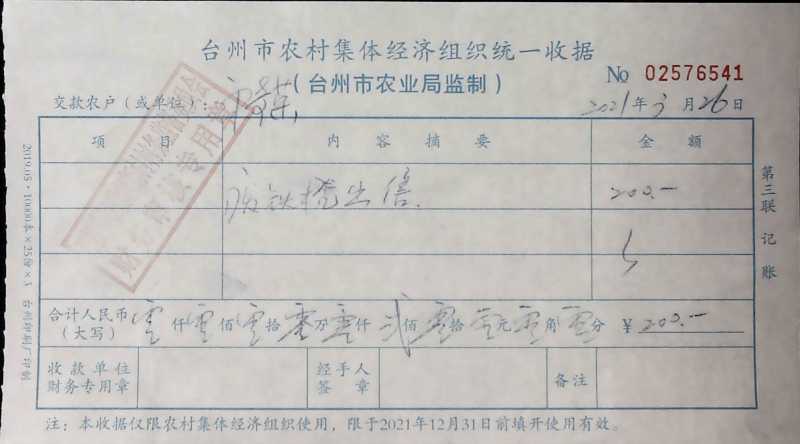 台州市农村集体经济组织统一收据
(台州市农业局监制)
No 02576541
交款农户(或单位):
2021年3月26日
项目 内容摘要 金额
200.—
合计人民币(大写) 零仟零佰零拾零万零仟贰佰零拾零元零角零分 ¥200.—
收款单位财务专用章 经手人签章 备注
注:本收据仅限农村集体经济组织使用,限于2021年12月31日前填开使用有效。
第三联 记账
2019.05·10000本×25份×3 台州印刷厂印制
财务收讫专用章